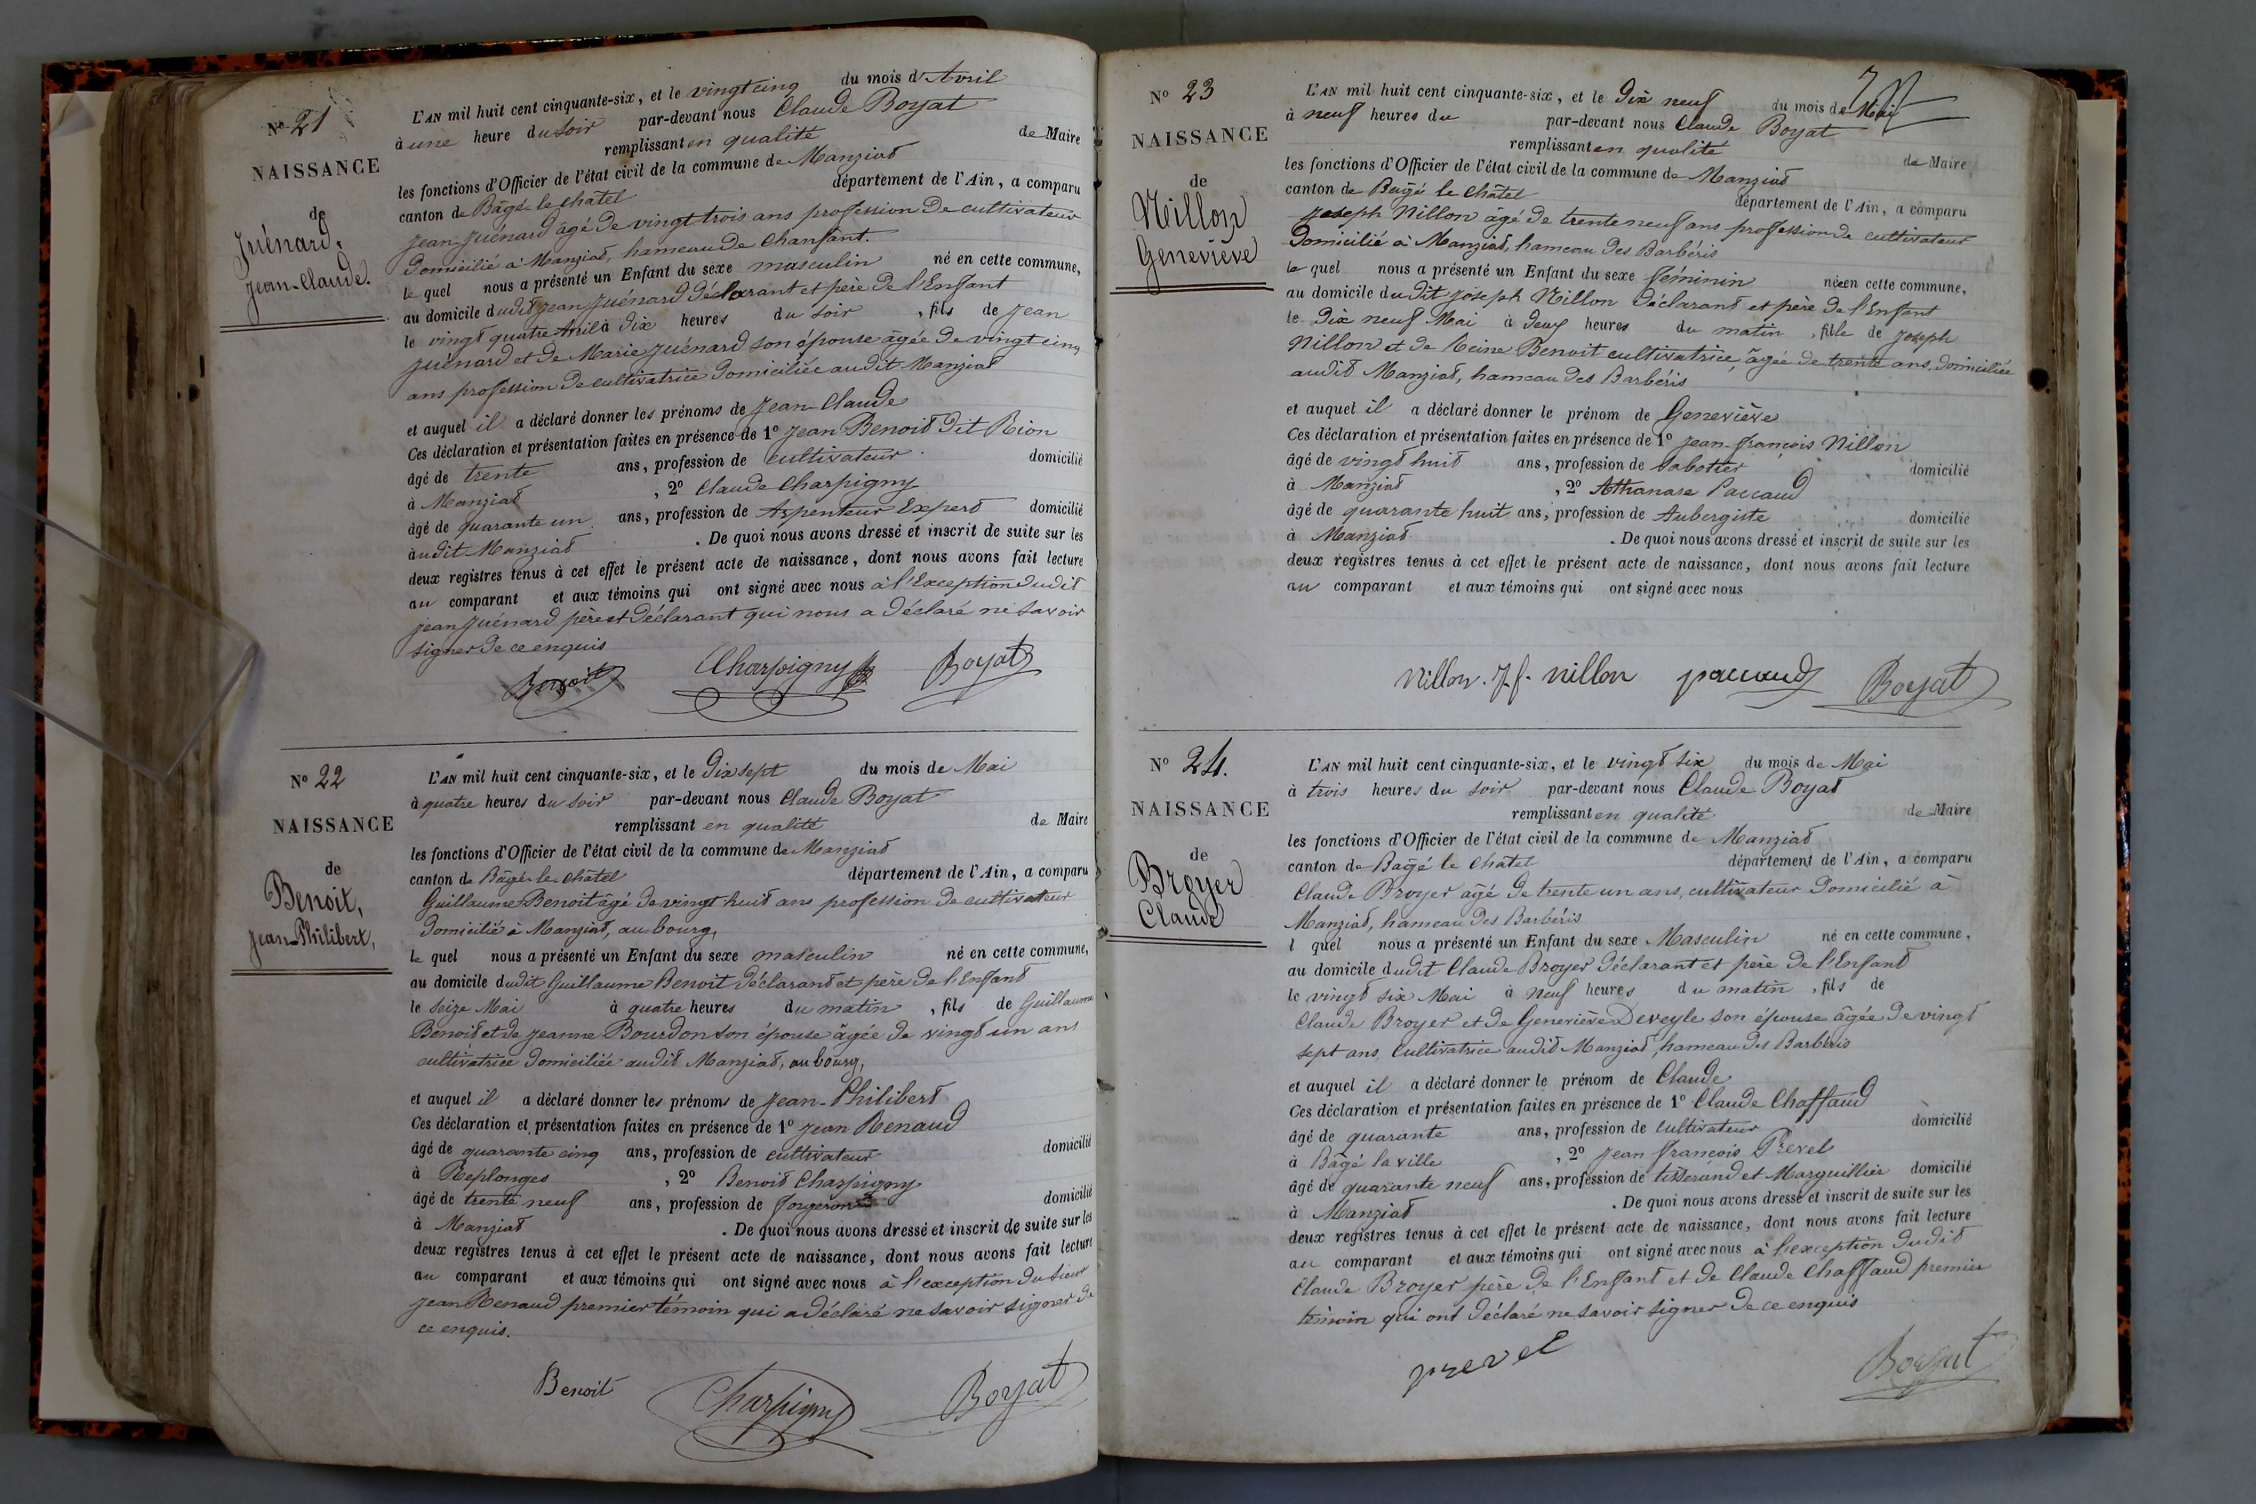 N° 21
NAISSANCE
de
Juénard,
Jean-Claude.
L'AN mil huit cent cinquante-six, et le vingt cinq du mois d'Avril
à une heure du soir par-devant nous Claude Boyat
remplissant en qualité de Maire
les fonctions d'Officier de l'état civil de la commune de Manziat
canton de Bâgé-le-châtel département de l'Ain, a comparu
Jean Juénard âgé de vingt trois ans profession de cultivateur
domicilié à Manziat, hameau de Chanfant.
le quel nous a présenté un Enfant du sexe masculin né en cette commune,
au domicile dudit Jean Juénard déclarant et père de l'Enfant
le vingt quatre Avril à dix heures du soir, fils de Jean
Juénard et de Marie Juénard son épouse âgée de vingt cinq
ans profession de cultivatrice domiciliée audit Manziat
et auquel il a déclaré donner les prénoms de Jean Claude
Ces déclaration et présentation faites en présence de 1° Jean Benoit dit Rion
âgé de trente ans, profession de cultivateur domicilié
à Manziat, 2° Claude Charpigny
âgé de quarante un ans, profession de Arpenteur Expert domicilié
audit Manziat. De quoi nous avons dressé et inscrit de suite sur les
deux registres tenus à cet effet le présent acte de naissance, dont nous avons fait lecture
au comparant et aux témoins qui ont signé avec nous à l'Exception dudit
Jean Juénard père et déclarant qui nous a déclaré ne savoir
signer de ce enquis
Benoit Charpigny Boyat
N° 22
NAISSANCE
de
Benoit,
Jean-Philibert,
L'AN mil huit cent cinquante-six, et le dix sept du mois de Mai
à quatre heures du soir par-devant nous Claude Boyat
remplissant en qualité de Maire
les fonctions d'Officier de l'état civil de la commune de Manziat
canton de Bâgé-le-châtel département de l'Ain, a comparu
Guillaume Benoit âgé de vingt huit ans profession de cultivateur
domicilié à Manziat, au bourg,
le quel nous a présenté un Enfant du sexe masculin né en cette commune,
au domicile dudit Guillaume Benoit déclarant et père de l'Enfant
le seize Mai à quatre heures du matin, fils de Guillaume
Benoit et de Jeanne Bourdon son épouse âgée de vingt un ans
cultivatrice domiciliée audit Manziat, au bourg,
et auquel il a déclaré donner les prénoms de Jean-Philibert
Ces déclaration et présentation faites en présence de 1° Jean Renaud
âgé de quarante cinq ans, profession de cultivateur domicilié
à Replonges, 2° Benoit Charpigny
âgé de trente neuf ans, profession de forgeron domicilié
à Manziat. De quoi nous avons dressé et inscrit de suite sur les
deux registres tenus à cet effet le présent acte de naissance, dont nous avons fait lecture
au comparant et aux témoins qui ont signé avec nous à l'exception du sieur
Jean Renaud premier témoin qui a déclaré ne savoir signer de
ce enquis.
Benoit Charpigny Boyat
N° 23
NAISSANCE
de
Nillon
Geneviève
L'AN mil huit cent cinquante-six, et le dix neuf du mois de Mai
à neuf heures du par-devant nous Claude Boyat
remplissant en qualité de Maire
les fonctions d'Officier de l'état civil de la commune de Manziat
canton de Bâgé le châtel département de l'Ain, a comparu
Joseph Nillon âgé de trente neuf ans profession de cultivateur
domicilié à Manziat, hameau des Barbéris
le quel nous a présenté un Enfant du sexe féminin née en cette commune,
au domicile dudit Joseph Nillon déclarant et père de l'Enfant
le dix neuf Mai à deux heures du matin, fille de Joseph
Nillon et de Reine Benoit cultivatrice, âgée de trente ans, domiciliée
audit Manziat, hameau des Barbéris
et auquel il a déclaré donner le prénom de Geneviève
Ces déclaration et présentation faites en présence de 1° Jean-françois Nillon
âgé de vingt huit ans, profession de sabotier domicilié
à Manziat, 2° Athanase Paccaud
âgé de quarante huit ans, profession de Aubergiste domicilié
à Manziat. De quoi nous avons dressé et inscrit de suite sur les
deux registres tenus à cet effet le présent acte de naissance, dont nous avons fait lecture
au comparant et aux témoins qui ont signé avec nous
Nillon. J.f. nillon paccaud Boyat
N° 24.
NAISSANCE
de
Broyer
Claude
L'AN mil huit cent cinquante-six, et le vingt six du mois de Mai
à trois heures du soir par-devant nous Claude Boyat
remplissant en qualité de Maire
les fonctions d'Officier de l'état civil de la commune de Manziat
canton de Bâgé le châtel département de l'Ain, a comparu
Claude Broyer âgé de trente un ans, cultivateur domicilié à
Manziat, hameau des Barbéris
l quel nous a présenté un Enfant du sexe Masculin né en cette commune,
au domicile dudit Claude Broyer déclarant et père de l'Enfant
le vingt six Mai à neuf heures du matin, fils de
Claude Broyer et de Geneviève Deveyle son épouse âgée de vingt
sept ans, Cultivatrice audit Manziat, hameau des Barbéris
et auquel il a déclaré donner le prénom de Claude
Ces déclaration et présentation faites en présence de 1° Claude Chaffaud
âgé de quarante ans, profession de cultivateur domicilié
à Bâgé la ville, 2° Jean françois Prevel
âgé de quarante neuf ans, profession de tisserand et Marguillier domicilié
à Manziat. De quoi nous avons dressé et inscrit de suite sur les
deux registres tenus à cet effet le présent acte de naissance, dont nous avons fait lecture
au comparant et aux témoins qui ont signé avec nous à l'exception dudit
Claude Broyer père de l'Enfant et de Claude Chaffaud premier
témoin qui ont déclaré ne savoir signer de ce enquis
prevel Boyat